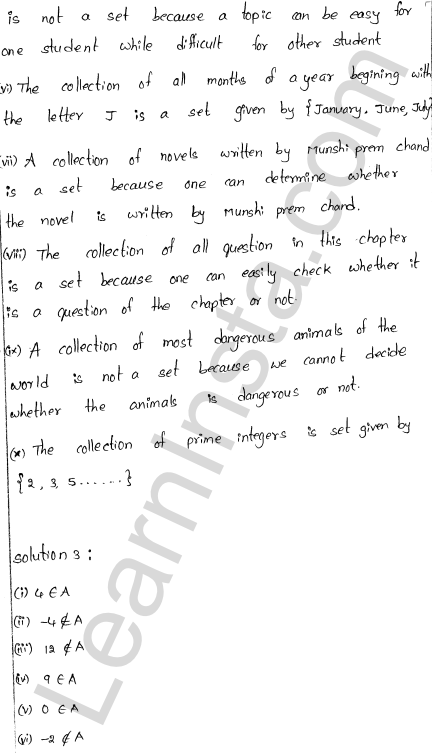 is not a set because a topic can be easy for
one student while difficult for other student
(vi) The collection of all months of a year begining with
the letter J is a set given by {January, June, July}
(vii) A collection of novels written by Munshi prem chand
is a set because one can determine whether
the novel is written by Munshi prem chand.
(viii) The collection of all question in this chapter
is a set because one can easily check whether it
is a question of the chapter or not.
(ix) A collection of most dangerous animals of the
world is not a set because we cannot decide
whether the animals is dangerous or not.
(x) The collection of prime integers is set given by
{2, 3, 5.......}
Solution 3 :
(i) 4 ∈ A
(ii) -4 ∉ A
(iii) 12 ∉ A
(iv) 9 ∈ A
(v) 0 ∈ A
(vi) -2 ∉ A
LearnInsta.com